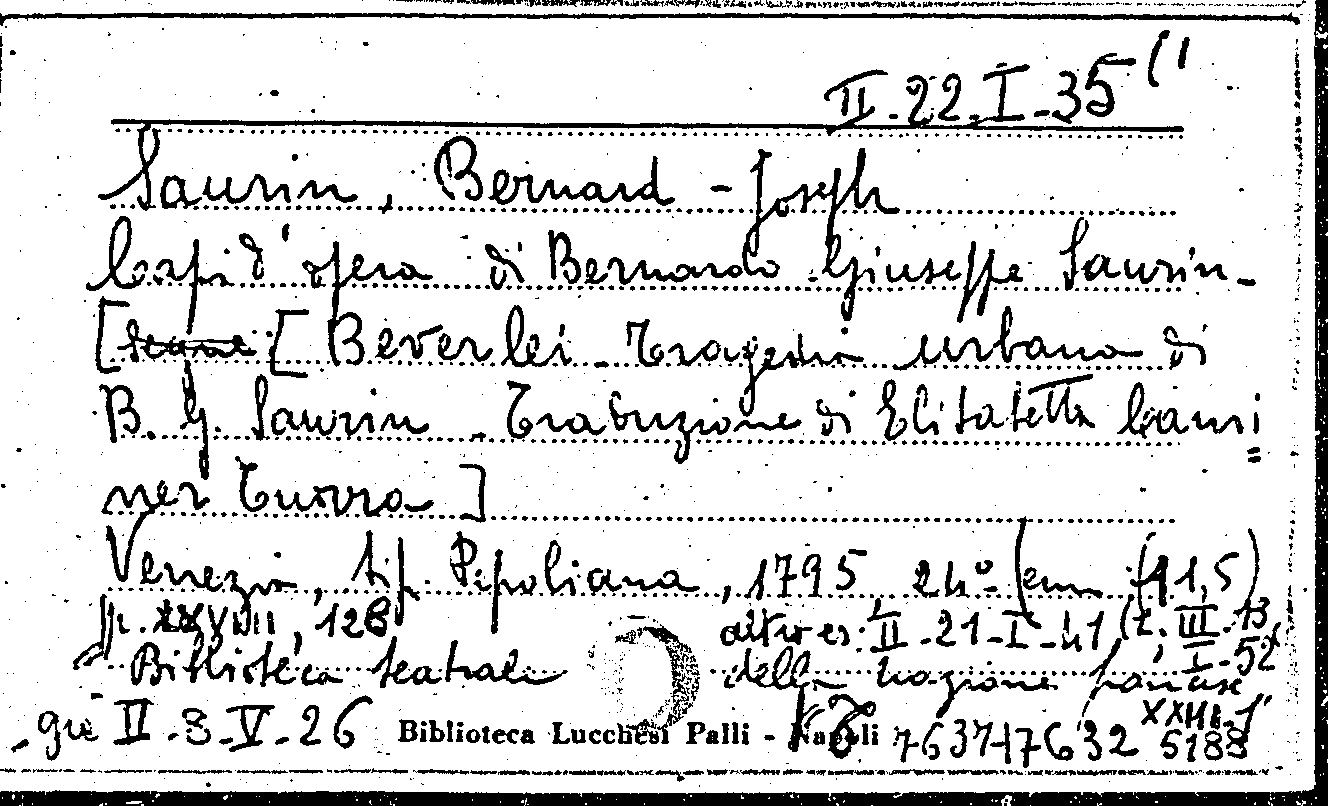 II.22.I.35(1
Saurin, Bernard-Joseph
Capi d'opera di Bernardo Giuseppe Saurin-
[segue [Beverlei. Tragedia urbana di
B. G. Saurin. Traduzione di Elisabetta Cami=
ner Turra]
Venezia, tip. Pepoliana, 1795 24° (cm. 11,5)
p. XXVIII, 128 altro es: II-21-I-41(2; III-13
Biblioteca teatrale della nazione francese I-52
già II.3.V.26 Biblioteca Lucchesi Palli - Napoli 7637+7632 5188